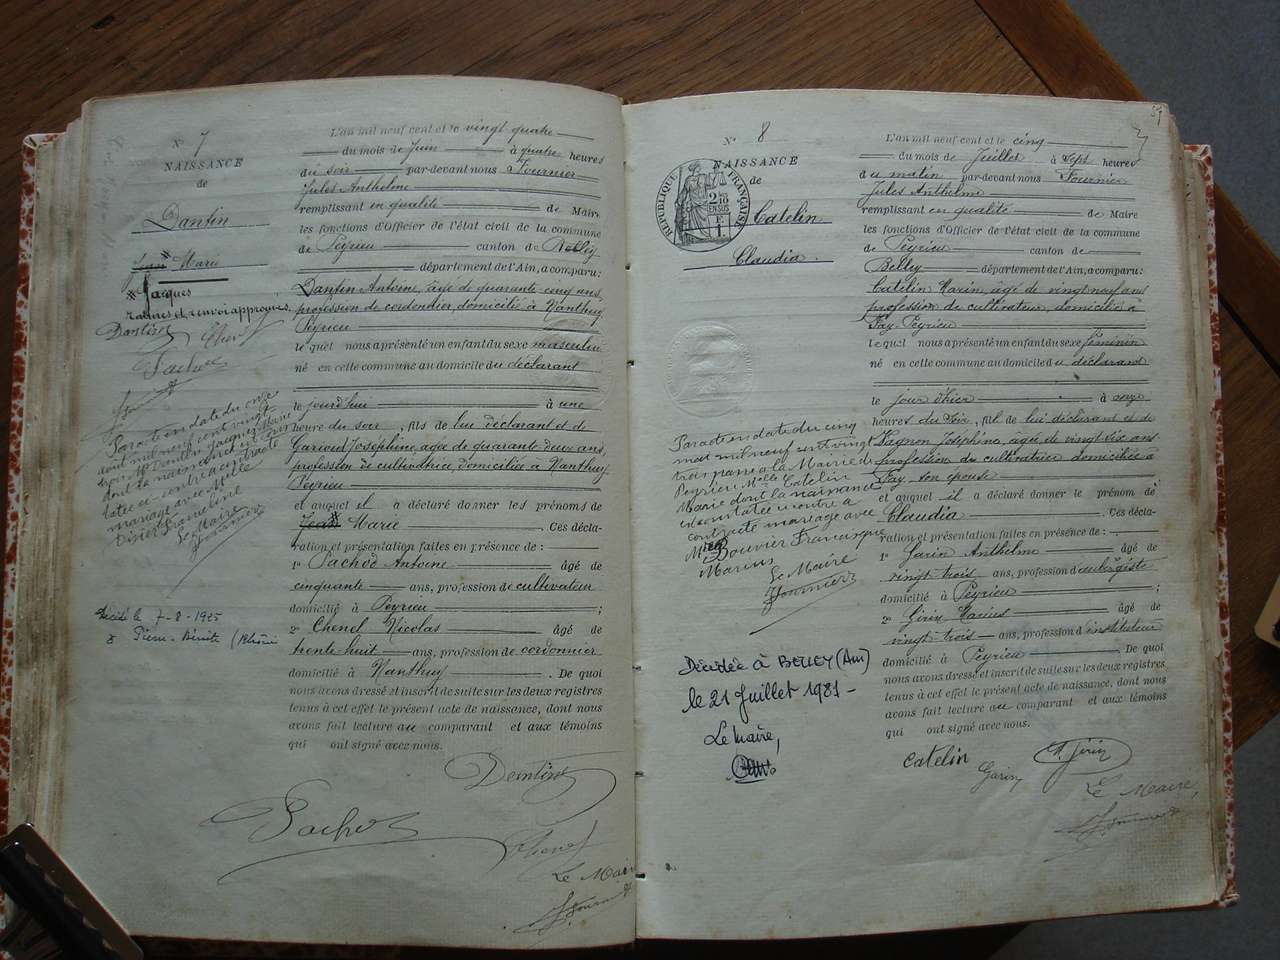 N° 7
NAISSANCE
de
Dantin
Jean Marie
Jacques
ratures et renvoi approuvés.
Par acte en date du onze
août mil neuf cent vingt
dont la naissance est
mariage avec Melle
Le Maire
Fournier
décédé le 7-8-1925
à Pierre-Bénite (Rhône
L'an mil neuf cent et le vingt quatre
du mois de Juin à quatre heures
du soir par-devant nous Fournier
Jules Anthelme
remplissant en qualité de Maire
les fonctions d'Officier de l'état civil de la commune
de Peyrieu canton de Belley
département de l'Ain, a comparu:
Dantin Antoine, âgé de quarante cinq ans,
profession de cordonnier, domicilié à Nanthuy
Peyrieu
lequel nous a présenté un enfant du sexe masculin
né en cette commune au domicile du déclarant
le jourd'hui à une
heure du soir, fils de lui déclarant et de
Joséphine, agée de quarante deux ans,
profession de cultivatrice, domiciliée à Nanthuy
Peyrieu
et auquel il a déclaré donner les prénoms de
Jean Marie Ces décla-
ration et présentation faites en présence de:
1° Pachod Antoine âgé de
cinquante ans, profession de cultivateur
domicilié à Peyrieu ;
2° Chenel Nicolas âgé de
trente-huit ans, profession de cordonnier
domicilié à Nanthuy . De quoi
nous avons dressé et inscrit de suite sur les deux registres
tenus à cet effet le présent acte de naissance, dont nous
avons fait lecture au comparant et aux témoins
qui ont signé avec nous.
Pachod
Chenel
Le Maire
Fournier
N° 8
NAISSANCE
de
RÉPUBLIQUE FRANÇAISE
Catelin
Claudia.
Par acte en date du cinq
mai mil neuf cent vingt
trois passé à la Mairie de
Peyrieu Melle Catelin
Marie dont la naissance
est constatée ci-contre a
contracté mariage avec
Mr Bouvier Francisque
Marius
Le Maire
Fournier
Décédée à BELLEY (Ain)
le 21 Juillet 1981-
Le Maire,
L'an mil neuf cent et le cinq
du mois de Juillet à Sept heures
du matin par-devant nous Fournier
Jules Anthelme
remplissant en qualité de Maire
les fonctions d'Officier de l'état civil de la commune
de Peyrieu canton de
Belley département de l'Ain, a comparu:
Catelin Marin, âgé de vingt neuf ans
profession de cultivateur, domicilié à
Fay-Peyrieu
lequel nous a présenté un enfant du sexe féminin
né en cette commune au domicile du déclarant
le jour d'hier à onze
heures du Soir, fil de lui déclarant et de
Joséphine, agée de vingt-six ans
profession de cultivatrice domiciliée à
Fay, son épouse
et auquel il a déclaré donner le prénom de
Claudia . Ces décla-
ration et présentation faites en présence de:
1° Garin Anthelme âgé de
vingt-trois ans, profession d'aubergiste
domicilié à Peyrieu ;
2° Girin Marius âgé de
vingt-trois ans, profession d'instituteur
domicilié à Peyrieu . De quoi
nous avons dressé et inscrit de suite sur les deux registres
tenus à cet effet le présent acte de naissance, dont nous
avons fait lecture au comparant et aux témoins
qui ont signé avec nous.
Catelin
Garin
Girin
Le Maire,
Fournier